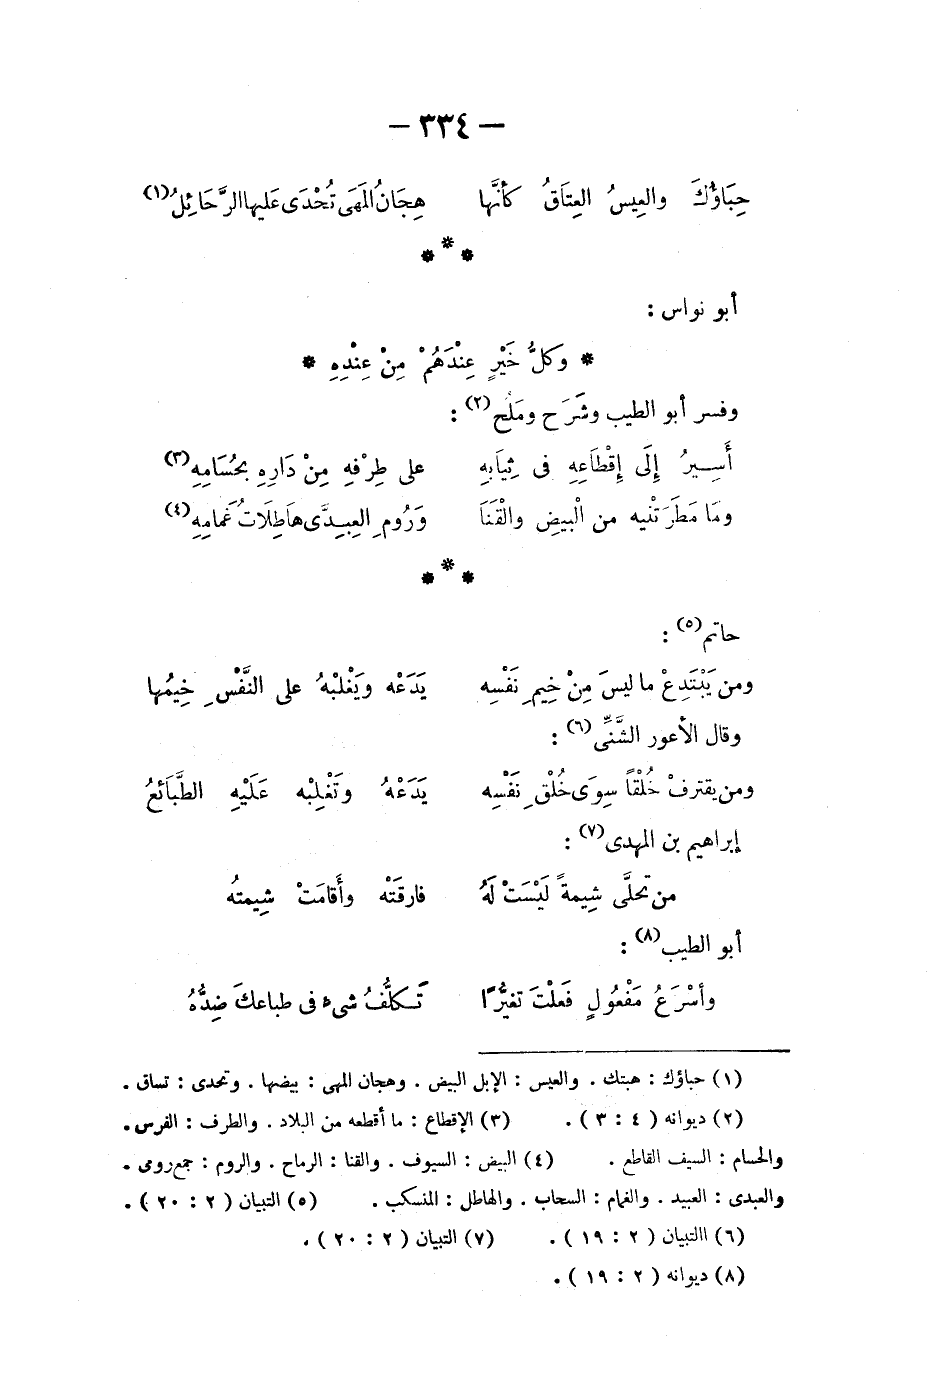 — ٣٣٤ —
حِبَاؤُكَ والعِيسُ العِتَاقُ كأنَّها هِجَانُ المَهَى تُحْدَى عَليها الرَّحَائِلُ (١)
* * *
أبو نواس :
* وكلُّ خَيْرٍ عِنْدَهُمْ مِنْ عِنْدِهِ *
وفسر أبو الطيب وشَرَح ومَلُح (٢) :
أَسِيرُ إِلَى إِقْطَاعِهِ فى ثِيَابِهِ على طِرْفِهِ مِنْ دَارِهِ بِحُسَامِهِ (٣)
ومَا مَطَرَتْنيه من الْبيضِ والْقَنَا وَرُومِ العِبِدَّى هَاطِلَاتُ غَمامِهِ (٤)
* * *
حاتم (٥) :
ومن يَبْتَدِعْ ما ليسَ مِنْ خِيمِ نَفْسِه يَدَعْه ويَغْلبْهُ على النَّفْسِ خِيمُها
وقال الأعور الشَّنِّى (٦) :
ومن يقترفْ خُلْقًا سِوَى خُلْقِ نَفْسِه يَدَعْهُ وتَغْلِبْه عَلَيْهِ الطَّبَائعُ
إبراهيم بن المهدى (٧) :
من تحلَّى شِيمةً لَيْسَتْ لَهُ فارقَتْه وأَقامَتْ شِيمتُه
أبو الطيب (٨) :
وأسْرَعُ مَفْعُولٍ فَعلْتَ تغيُّرًا تَكلُّفُ شىءٍ فى طباعكَ ضِدُّهُ
(١) حباؤك : هبتك . والعيس : الإبل البيض . وهجان المهى : بيضها . وتحدى : تساق .
(٢) ديوانه ( ٤ : ٣ ) . (٣) الإقطاع : ما أقطعه من البلاد . والطرف : الفرس .
والحسام : السيف القاطع . (٤) البيض : السيوف . والقنا : الرماح . والروم : جمع رومى .
والعبدى : العبيد . والغمام : السحاب . والهاطل : المنسكب . (٥) التبيان ( ٢ : ٢٠ ) .
(٦) االتبيان ( ٢ : ١٩ ) . (٧) التبيان ( ٢ : ٢٠ ) .
(٨) ديوانه ( ٢ : ١٩ ) .